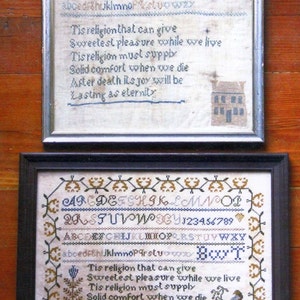 abcdefghijklmnopqrstuvwxyz
Tis religion that can give
Sweetest pleasure while we live
Tis religion must supply
Solid comfort when we die
After death its joy will be
Lasting as eternity
ABCDEFGHIJKLMNO
PQRSTUVWXYZ 123456789
ABCDEFGHIJKLMNOPQRSTUVWXY
abcdefghijklmnopqrstuvwxyz
Tis religion that can give
Sweetest pleasure while we live
Tis religion must supply
Solid comfort when we die